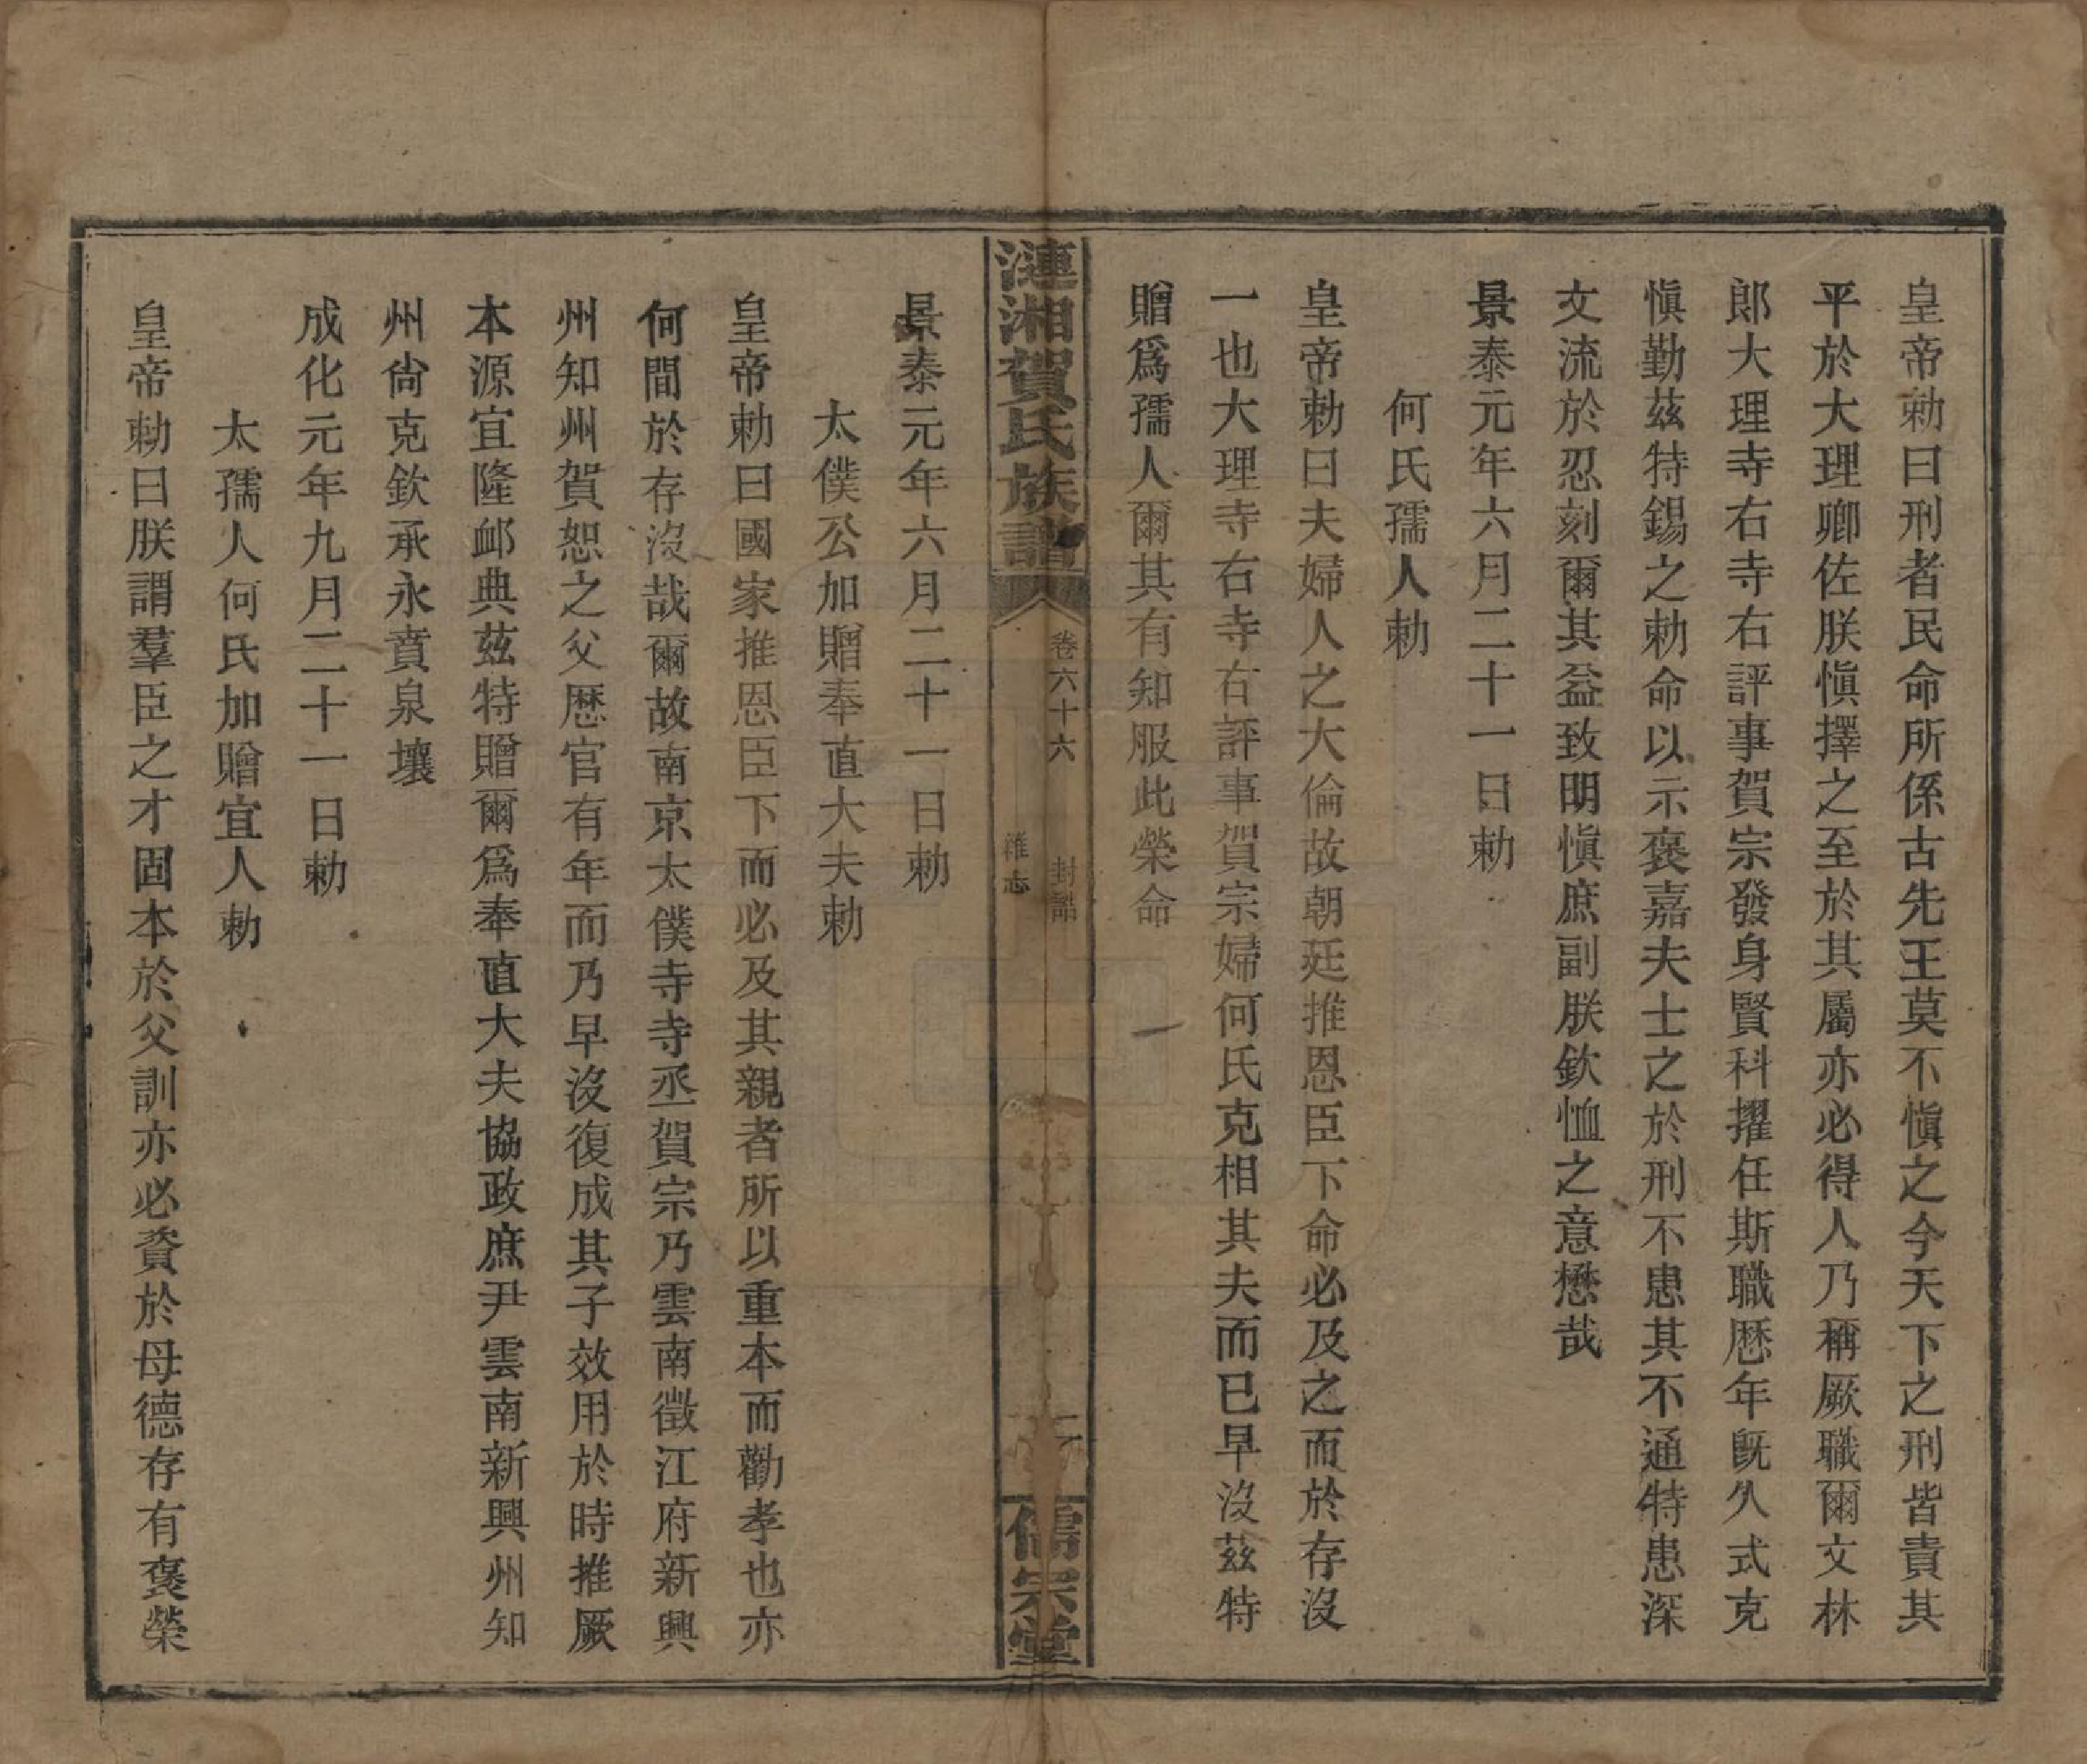 皇帝勅曰刑者民命所係古先王莫不愼之今天下之刑皆責其
平於大理卿佐朕愼擇之至於其屬亦必得人乃稱厥職爾文林
郎大理寺右寺右評事賀宗發身賢科擢任斯職歷年既久式克
愼勤茲特錫之勅命以示褒嘉夫士之於刑不患其不通特患深
文流於忍刻爾其益致明愼庶副朕欽恤之意懋哉
景泰元年六月二十一日勅
何氏孺人勅
皇帝勅曰夫婦人之大倫故朝廷推恩臣下命必及之而於存沒
一也大理寺右寺右評事賀宗婦何氏克相其夫而已早沒茲特
贈爲孺人爾其有知服此榮命
漣湘賀氏族譜
卷六十六
封誥
雜志
儒宗堂
景泰元年六月二十一日勅
太僕公加贈奉直大夫勅
皇帝勅曰國家推恩臣下而必及其親者所以重本而勸孝也亦
何間於存沒哉爾故南京太僕寺寺丞賀宗乃雲南徵江府新興
州知州賀恕之父歷官有年而乃早沒復成其子效用於時推厥
本源宜隆卹典茲特贈爾爲奉直大夫協政庶尹雲南新興州知
州尙克欽承永賁泉壤
成化元年九月二十一日勅
太孺人何氏加贈宜人勅
皇帝勅曰朕謂羣臣之才固本於父訓亦必資於母德存有褒榮